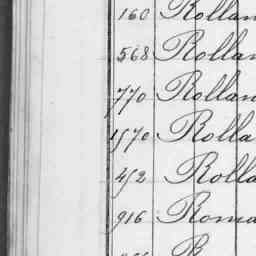 160 Rollan
568 Rollan
770 Rollan
1570 Rolla
452 Rolla
916 Roma